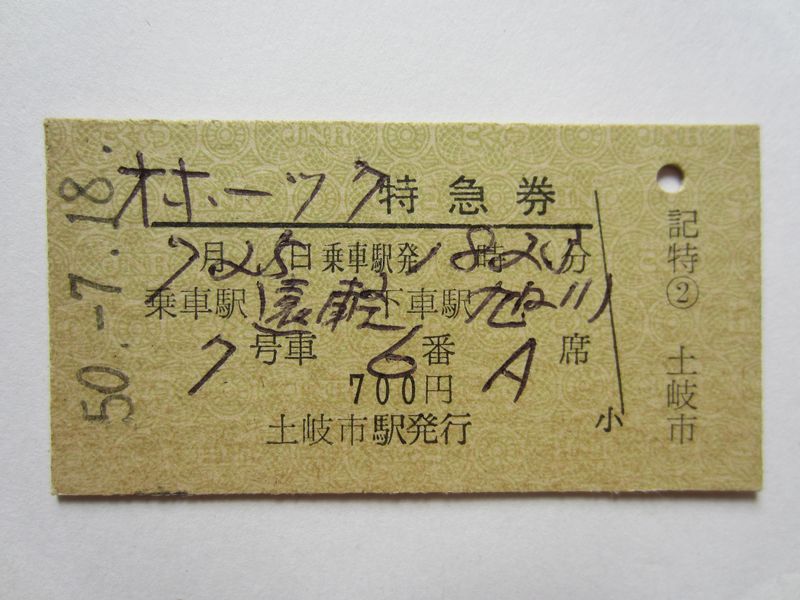 オホーツク特急券
7月25日乗車駅発18時25分
乗車駅遠軽下車駅旭川
7号車6番A席
700円
土岐市駅発行
小
50.-7.18.
記特② 土岐市